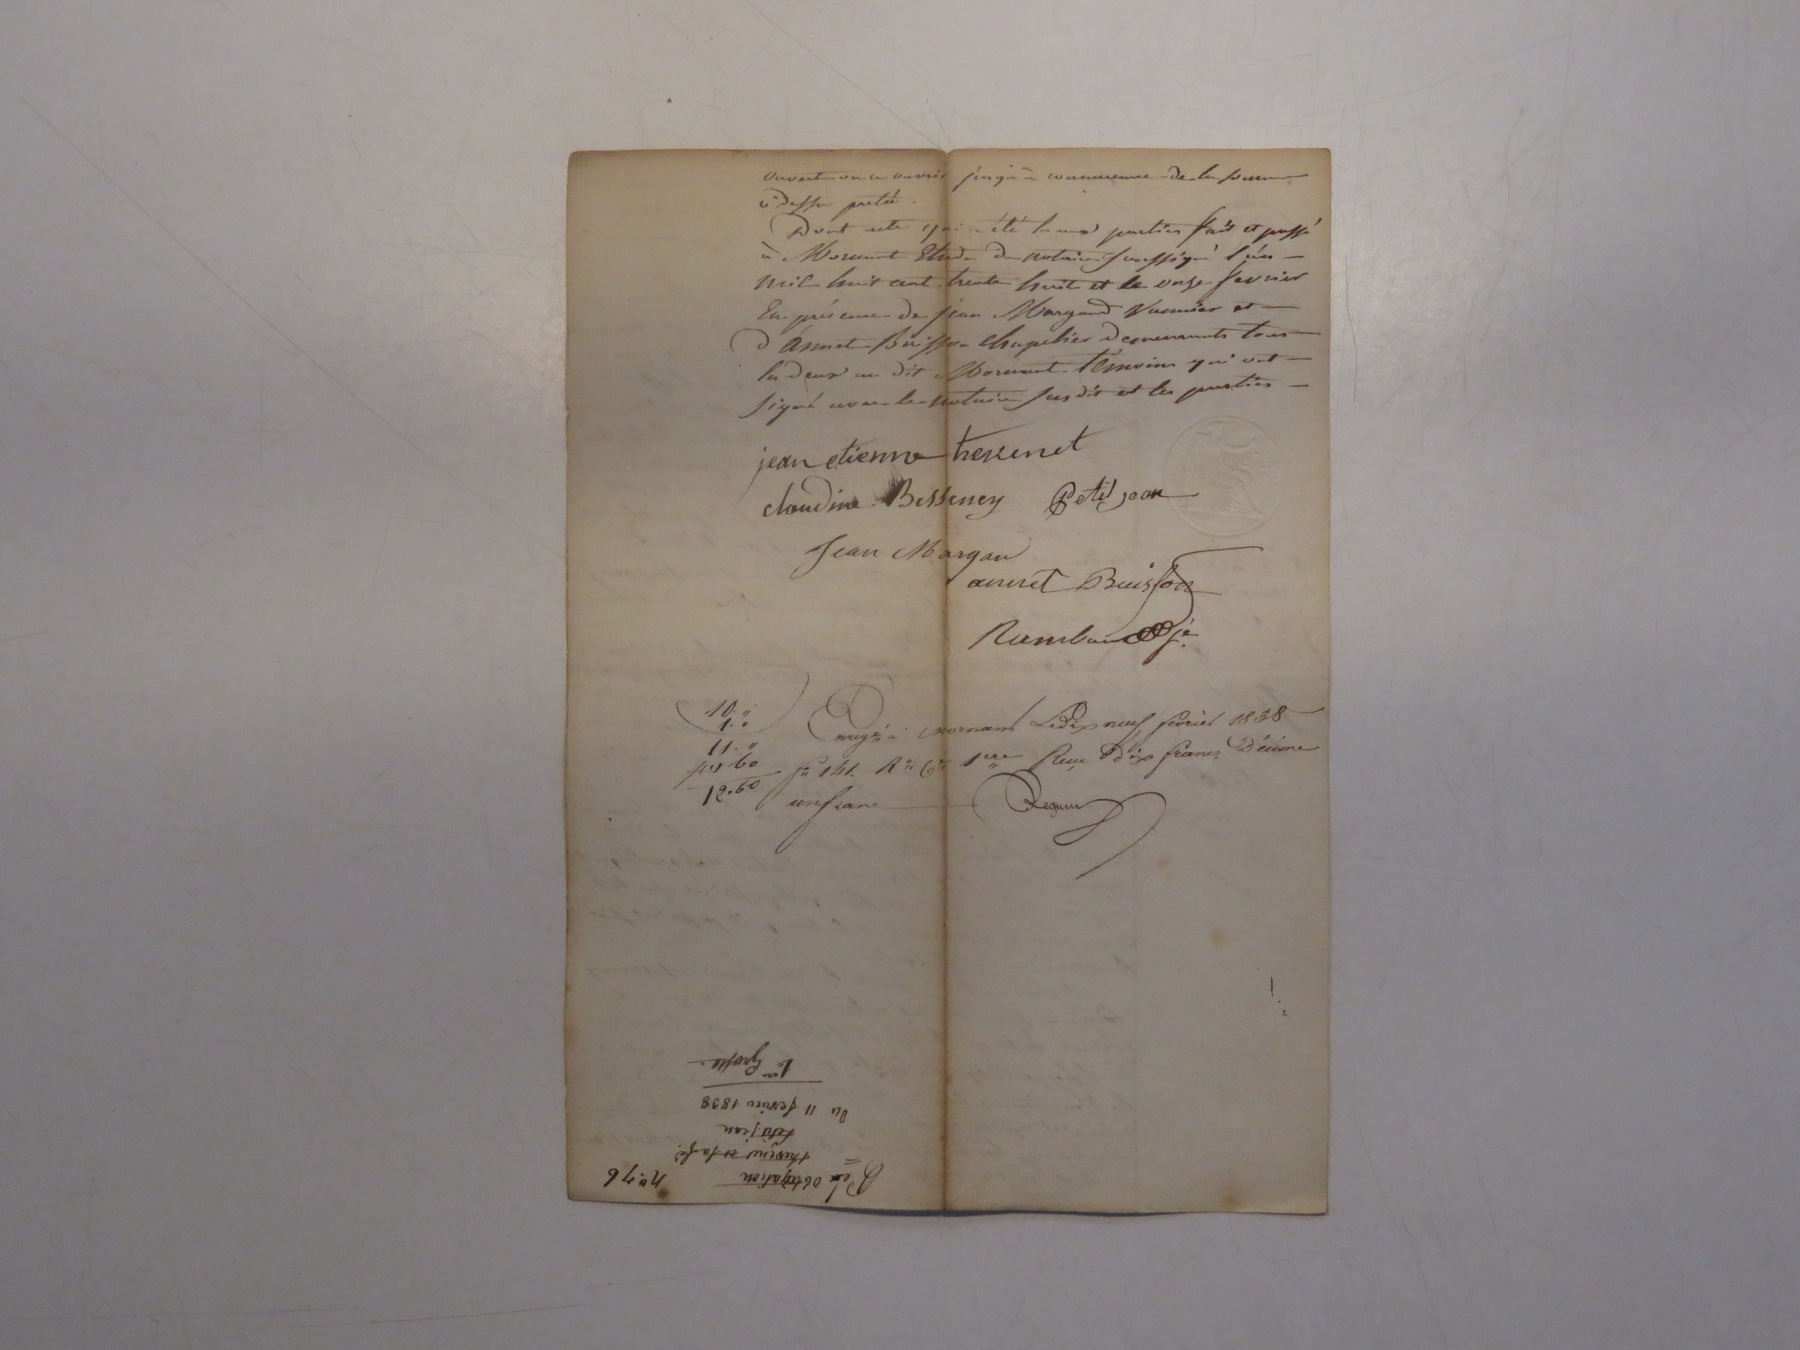 ouvert ou a ouvrir jusqu'a concurrence de la somme
ci dessus pretée.
Dont acte qui a été lu aux parties fait et passé
à Mornant Etude du notaire soussigné l'an
mil huit cent trente huit et le onze fevrier
En présence de jean Margand et
d'ánnet Buisson chapelier demeurants tous
les deux au dit Mornant témoins qui ont
signé avec le notaire susdit et les parties
jean etienne
claudine Besseney Petit jean
Jean Margan
annet Buisson
Rambaud
10. "
1. "
11. "
1.60
12.60
à mornant Le dix neuf fevrier 1838
fo 141. Ro Ce 1ere Reçu dix francs Décime
un franc
1ere Grosse
Du 11 fevrier 1838
Petitjean
obligation
no. 76